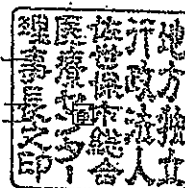 地方独立
行政法人
佐世保市総合
医療センター
理事長之印